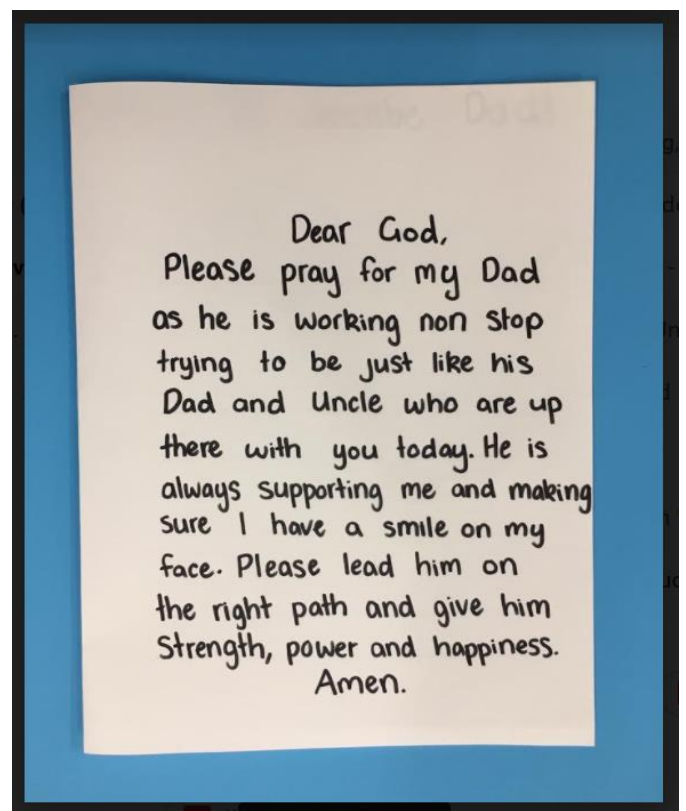 Dear God,
Please pray for my Dad
as he is working non stop
trying to be just like his
Dad and Uncle who are up
there with you today. He is
always supporting me and making
sure I have a smile on my
face. Please lead him on
the right path and give him
Strength, power and happiness.
Amen.